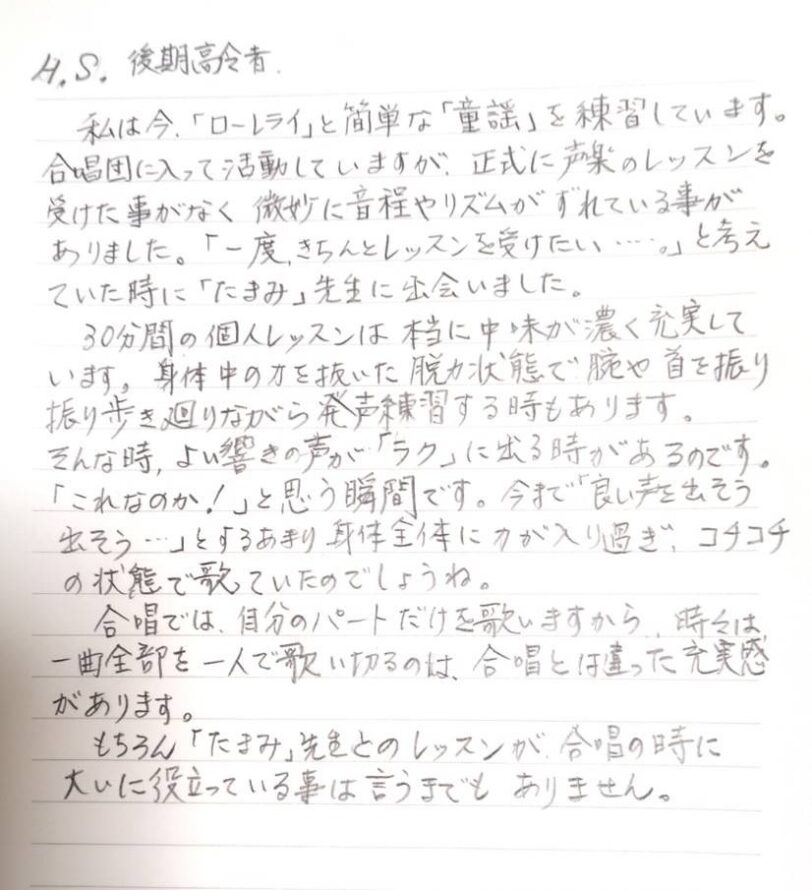 H.S. 後期高令者.
私は今、「ローレライ」と簡単な「童謡」を練習しています。
合唱団に入って活動していますが、正式に声楽のレッスンを
受けた事がなく 微妙に音程やリズムがずれている事が
ありました。「一度、きちんとレッスンを受けたい……。」と考え
ていた時に「たまみ」先生に出会いました。
30分間の個人レッスンは 本当に中味が濃く充実して
います。身体中の力を抜いた 脱力状態で 腕や首を振り
振り歩き廻りながら発声練習する時もあります。
そんな時、よい響きの声が「ラク」に出る時があるのです。
「これなのか!」と思う瞬間です。今まで「良い声を出そう
出そう…」とするあまり 身体全体に力が入り過ぎ、コチコチ
の状態で歌っていたのでしょうね。
合唱では、自分のパートだけを歌いますから、時々は
一曲全部を一人で歌い切るのは、合唱とは違った充実感
があります。
もちろん「たまみ」先生とのレッスンが、合唱の時に
大いに役立っている事は言うまでも ありません。